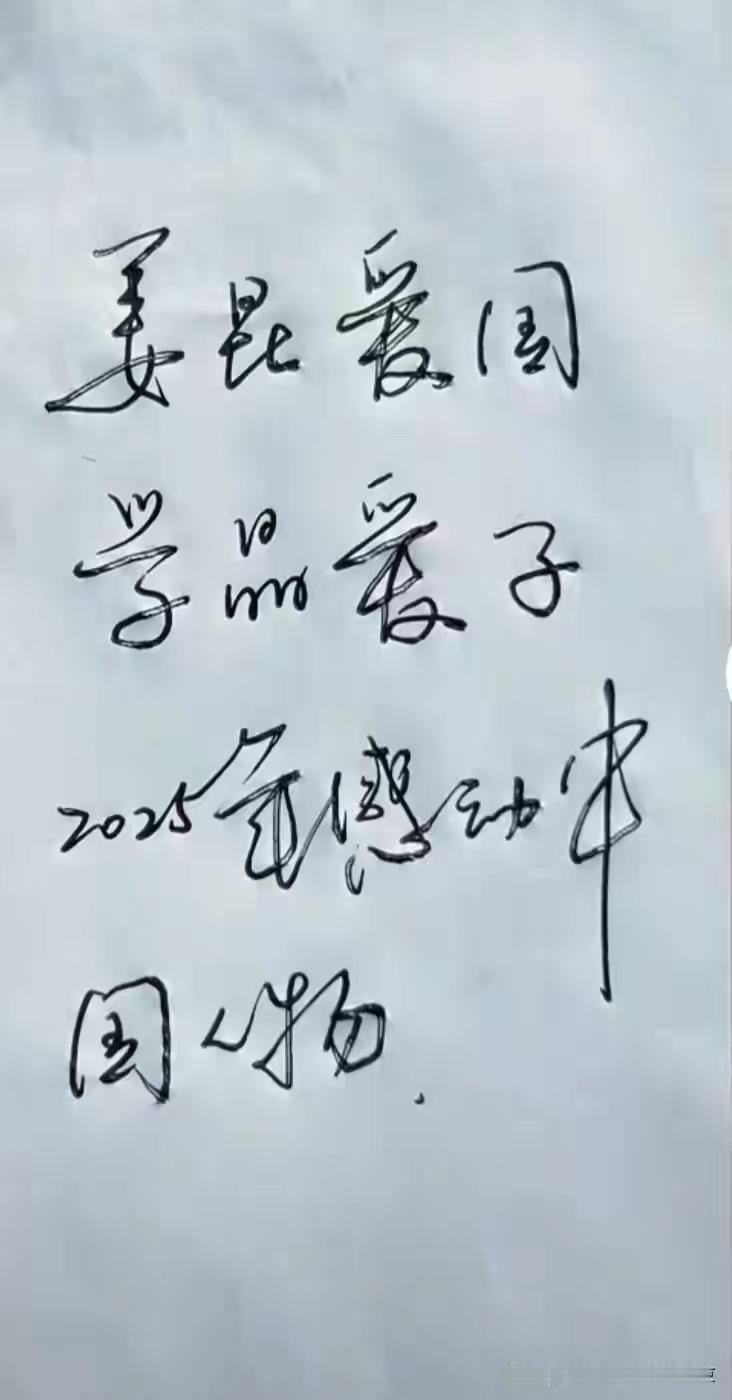 姜昆爱国
学晶爱子
2025年感动中
国人物.